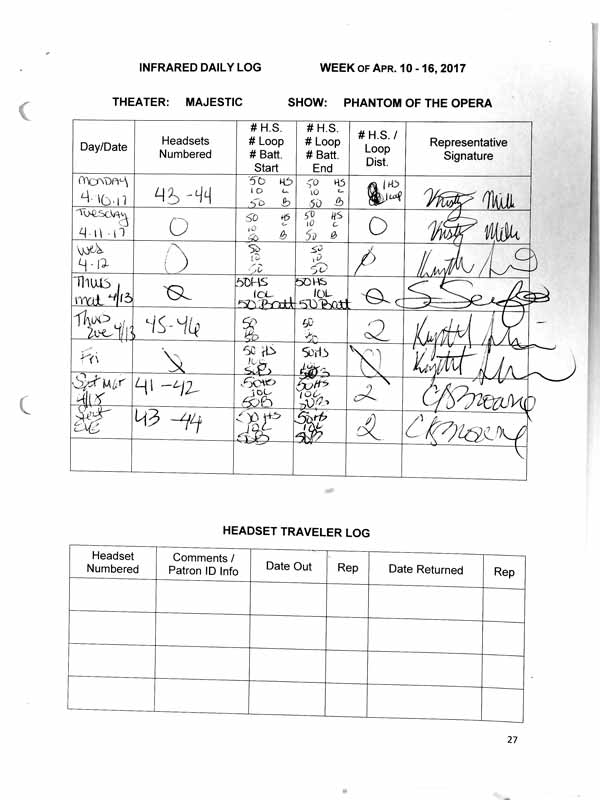 INFRARED DAILY LOG WEEK OF APR. 10 - 16, 2017
THEATER: MAJESTIC SHOW: PHANTOM OF THE OPERA
Day/Date
Headsets
Numbered
# H.S.
# Loop
# Batt.
Start
# H.S.
# Loop
# Batt.
End
# H.S. /
Loop
Dist.
Representative
Signature
MONDAY
4-10-17
43-44
50 HS
10 L
50 B
50 HS
10 L
50 B
1 HS
1 Loop
Tuesday
4-11-17
0
50 HS
10 L
50 B
50 HS
10 L
50 B
0
Wed
4-12
0
50
10
50
50
10
50
Thurs
mat 4/13
50HS
10L
50 Batt
50HS
10L
50 Batt
Thurs
eve 4/13
45-46
50
10
50
50
10
50
2
Fri
50 HS
50HS
Sat Mat
4/15
41-42
50HS
10L
50B
50HS
10L
50B
2
Sat
EVE
43-44
50HS
10L
50B
50HS
10L
50B
2
HEADSET TRAVELER LOG
Headset
Numbered
Comments /
Patron ID Info
Date Out
Rep
Date Returned
Rep
27